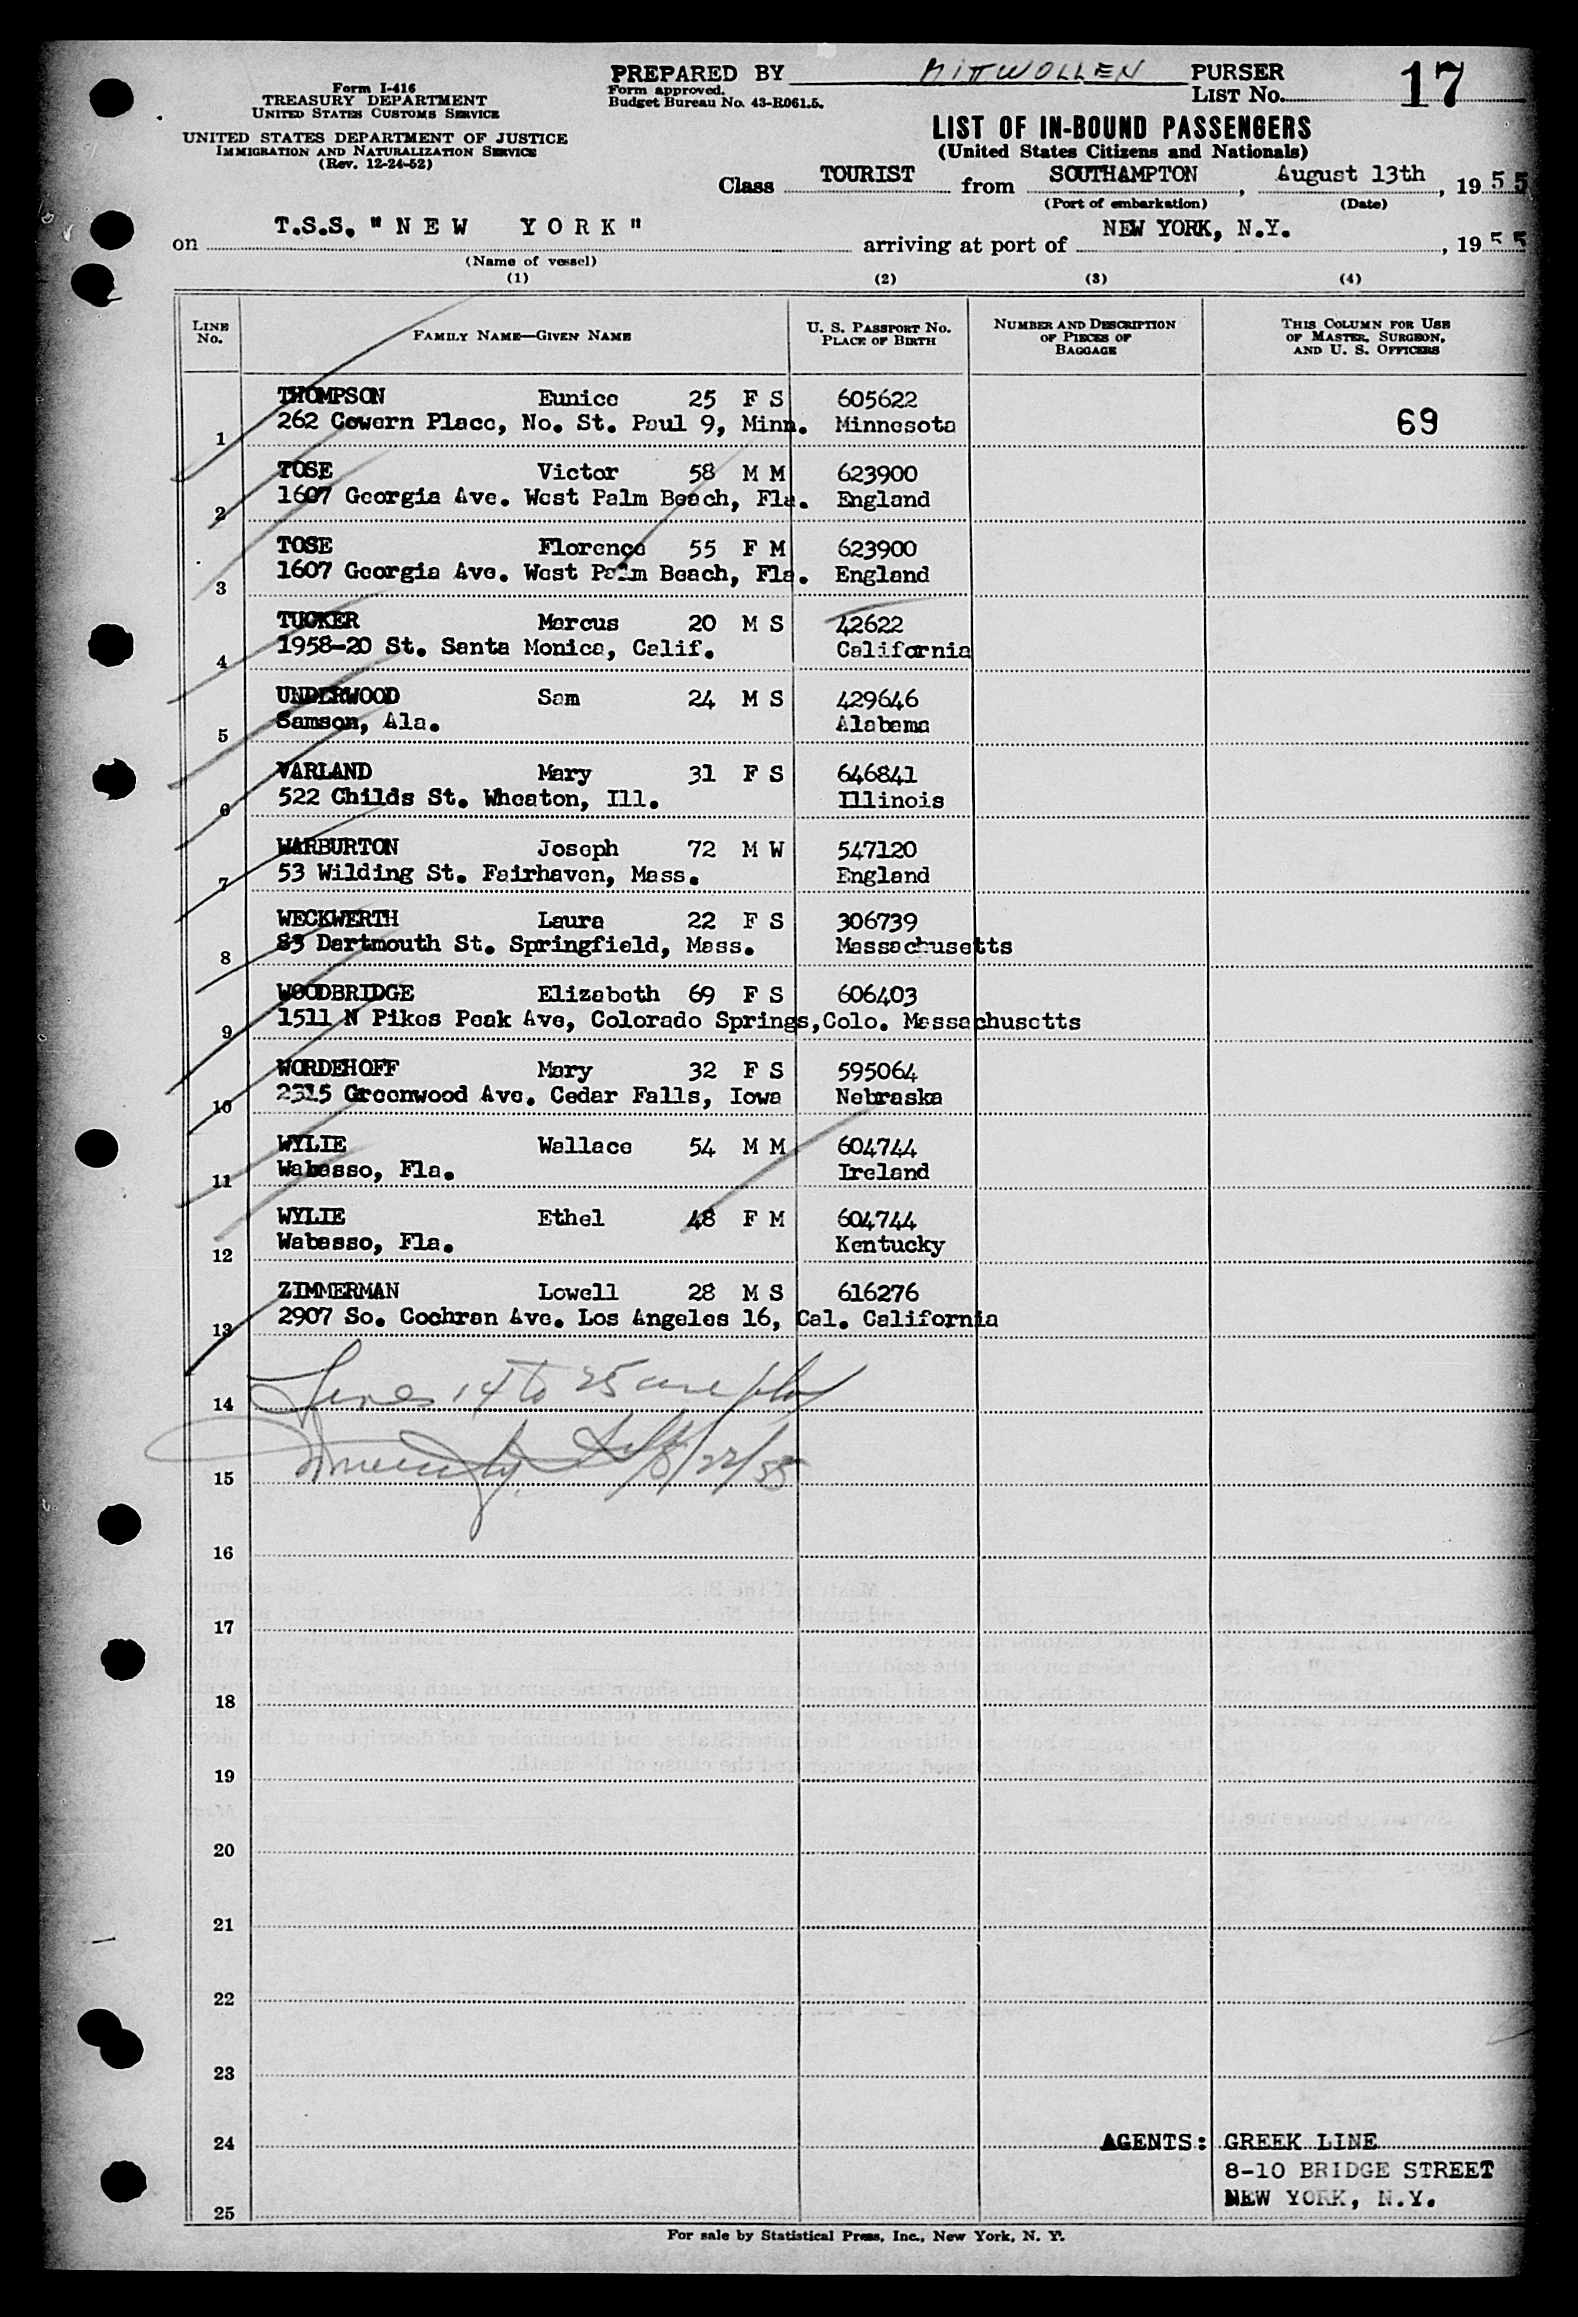 Form I-416
TREASURY DEPARTMENT
UNITED STATES CUSTOMS SERVICE
UNITED STATES DEPARTMENT OF JUSTICE
IMMIGRATION AND NATURALIZATION SERVICE
(Rev. 12-24-52)
PREPARED BY MITTWOLLEN PURSER
Form approved.
Budget Bureau No. 43-R061.5.
LIST No. 17
LIST OF IN-BOUND PASSENGERS
(United States Citizens and Nationals)
Class TOURIST from SOUTHAMPTON, August 13th, 1955
(Port of embarkation) (Date)
on T.S.S. "NEW YORK" arriving at port of NEW YORK, N.Y., 1955
(Name of vessel)
(1) (2) (3) (4)
LINE No. FAMILY NAME—GIVEN NAME U. S. PASSPORT No. PLACE OF BIRTH NUMBER AND DESCRIPTION OF PIECES OF BAGGAGE THIS COLUMN FOR USE OF MASTER, SURGEON, AND U. S. OFFICERS
THOMPSON Eunice 25 F S 605622
1 262 Cowern Place, No. St. Paul 9, Minn. Minnesota 69
TOSE Victor 58 M M 623900
2 1607 Georgia Ave. West Palm Beach, Fla. England
TOSE Florence 55 F M 623900
3 1607 Georgia Ave. West Palm Beach, Fla. England
TUCKER Marcus 20 M S 42622
4 1958-20 St. Santa Monica, Calif. California
UNDERWOOD Sam 24 M S 429646
5 Samson, Ala. Alabama
VARLAND Mary 31 F S 646841
6 522 Childs St. Wheaton, Ill. Illinois
WARBURTON Joseph 72 M W 547120
7 53 Wilding St. Fairhaven, Mass. England
WECKWERTH Laura 22 F S 306739
8 83 Dartmouth St. Springfield, Mass. Massachusetts
WOODBRIDGE Elizabeth 69 F S 606403
9 1511 N Pikes Peak Ave, Colorado Springs, Colo. Massachusetts
WORDEHOFF Mary 32 F S 595064
10 2315 Greenwood Ave. Cedar Falls, Iowa Nebraska
WYLIE Wallace 54 M M 604744
11 Wabasso, Fla. Ireland
WYLIE Ethel 48 F M 604744
12 Wabasso, Fla. Kentucky
ZIMMERMAN Lowell 28 M S 616276
13 2907 So. Cochran Ave. Los Angeles 16, Cal. California
14 Lines 14 to 25 are
15 8/22/55
16
17
18
19
20
21
22
23
24 AGENTS: GREEK LINE
8-10 BRIDGE STREET
25 NEW YORK, N.Y.
For sale by Statistical Press, Inc., New York, N. Y.